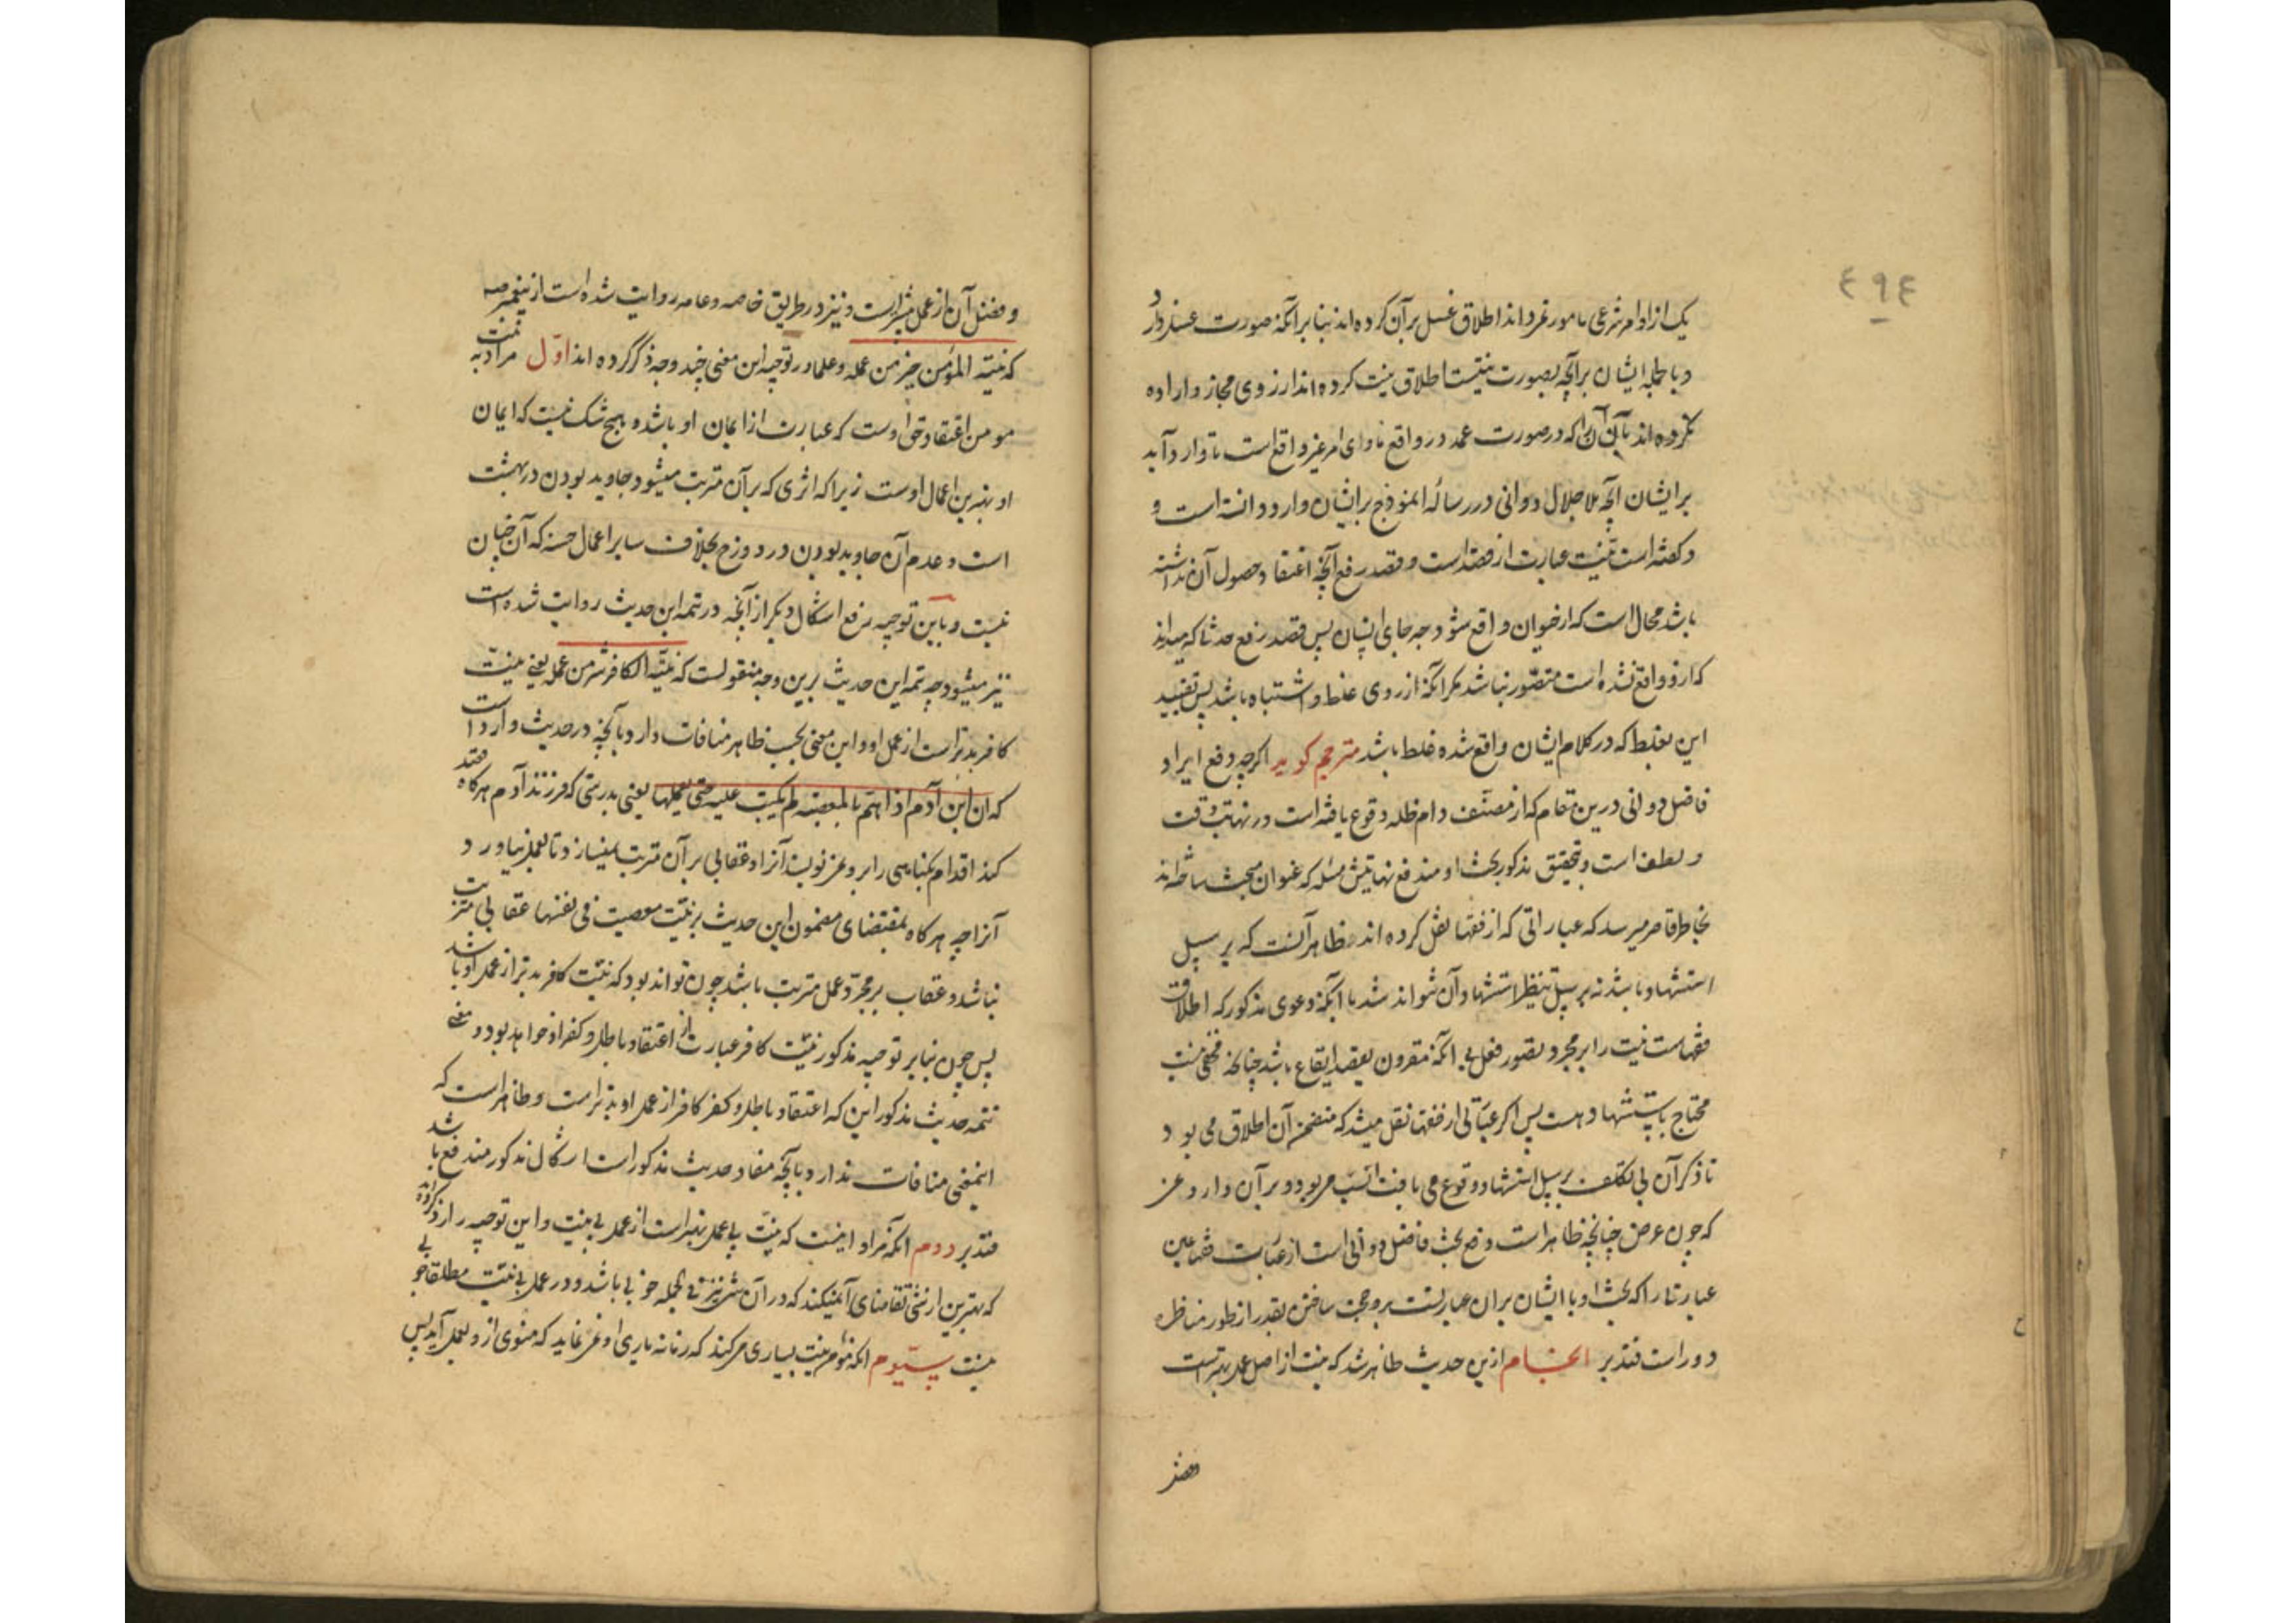 ٤٩٤
یک از اوامر شرعی مامور نمرد اند اطلاق غسل بر آن کرده اند بنا بر آنکه صورت غسل دارد
و بالجمله ایشان بر آنچه بصورت نیتست اطلاق نیت کرده اند از روی مجاز و اراده
نکرده اند بآن آنرا که در صورت عمد در واقع ناوی امر غیر واقع است تا وارد آید
بر ایشان آنچه ملا جلال دوانی در رساله انموذج بر ایشان وارد دانسته است و
و گفته است نیت عبارت از قصد است و قصد رفع آنچه اعتقاد حصول آن نداشته
باشد محال است که از حیوان واقع شود چه جای انسان پس قصد رفع حدثی که میداند
که ازو واقع نشده است متصور نباشد مکر آنکه از روی غلط و اشتباه باشد پس تقیید
این بغلط که در کلام ایشان واقع شده غلط باشد مترجم کوید اکرچه دفع ایراد
فاضل دوانی درین مقام که از مصنف دام ظله وقوع یافته است در نهایت دقت
و لطف است و بتحقیق مذکور بحث او مندفع نهایتش مسئله که عنوان مبحث ساخته اند
بخاطر قاصر میرسد که عباراتی که از فقها نقل کرده اند ظاهر آنست که بر سبیل
استشهاد باشد نه بر سبیل تنظیر استشهاد آن نتواند شد با آنکه دعوی مذکور که اطلاق
فقهاست نیت را بر مجرد تصور فعل بی آنکه مقرون بقصد ایقاع باشد چنانچه مخفی نیست
محتاج باستشهاد هست پس اکر عبارتی از فقها نقل میشد که متضمن آن اطلاق می بود
تا ذکر آن بی تکلف بر سبیل استشهاد وقوع می یافت انسب می بود و بر آن وارد
که چون غرض چنانچه ظاهر است دفع بحث فاضل دوانی است از عبارت فقها عین
عبارتی را که بحث او با ایشان بر آن عبارتست بر وجه حجت ساختن بقدر از طور مناظره
دور است فتدبر الختام ازین حدیث ظاهر شد که نیت از اصل عمل بهتر است
وفضل
و فضل آن از عمل بیشتر است و نیز در طریق خاصه و عامه روایت شده است از پیغمبر صه
که نیة المؤمن خیر من عمله و علما در توجیه این معنی چند وجه ذکر کرده اند اول مراد به نیت
مومن اعتقاد حق اوست که عبارت از ایمان او باشد و هیچ شک نیست که ایمان
او بهترین اعمال اوست زیرا که اثری که بر آن مترتب میشود جاوید بودن در بهشت
است و عدم آن جاوید بودن در دوزخ بخلاف سایر اعمال حسنه که آن چنان
نیست و باین توجیه رفع اشکال دیکر از آنچه در تتمه این حدیث روایت شده است
نیز میشود چه تتمه این حدیث برین وجه منقولست که نیة الکافر شر من عمله یعنی نیت
کافر بدتر است از عمل او و این معنی بحسب ظاهر منافات دارد با آنچه در حدیث وارد است
که ان ابن آدم اذا اهتم بالمعصیة لم یکتب علیه حتی یعملها یعنی بدرستی که فرزند آدم هرگاه قصد
کند اقدام بکناهی را بر وی نمی نویسند آنرا و عقابی بر آن مترتب نمیسازند تا بعمل نیاورد
آنرا چه هرکاه بمقتضای مضمون این حدیث بر نیت معصیت فی نفسها عقابی مترتب
نباشد و عقاب بر مجرد عمل مترتب باشد چون تواند بود که نیت کافر بدتر از عمل او باشد
پس چون بنا بر توجیه مذکور نیت کافر عبارت از اعتقاد باطل و کفر او خواهد بود و معنی
تتمه حدیث مذکور این که اعتقاد باطل و کفر کافر از عمل او بدتر است و ظاهر است که
اینمعنی منافات ندارد با آنچه مفاد حدیث مذکور است اشکال مذکور مندفع باشد
فتدبر دوم آنکه مراد اینست که نیت بی عمل بهتر است از عمل بی نیت و این توجیه را رد کرده اند
که بهترین از شی تقاضای آن میکند که در آن شی نیز فی الجمله خوبی باشد و در عمل بی نیت مطلقا خوبی
نیست سیوم آنکه مؤمن نیت بسیاری میکند که زمانه یاری او نمی نماید که منوی ازو بعمل آید پس